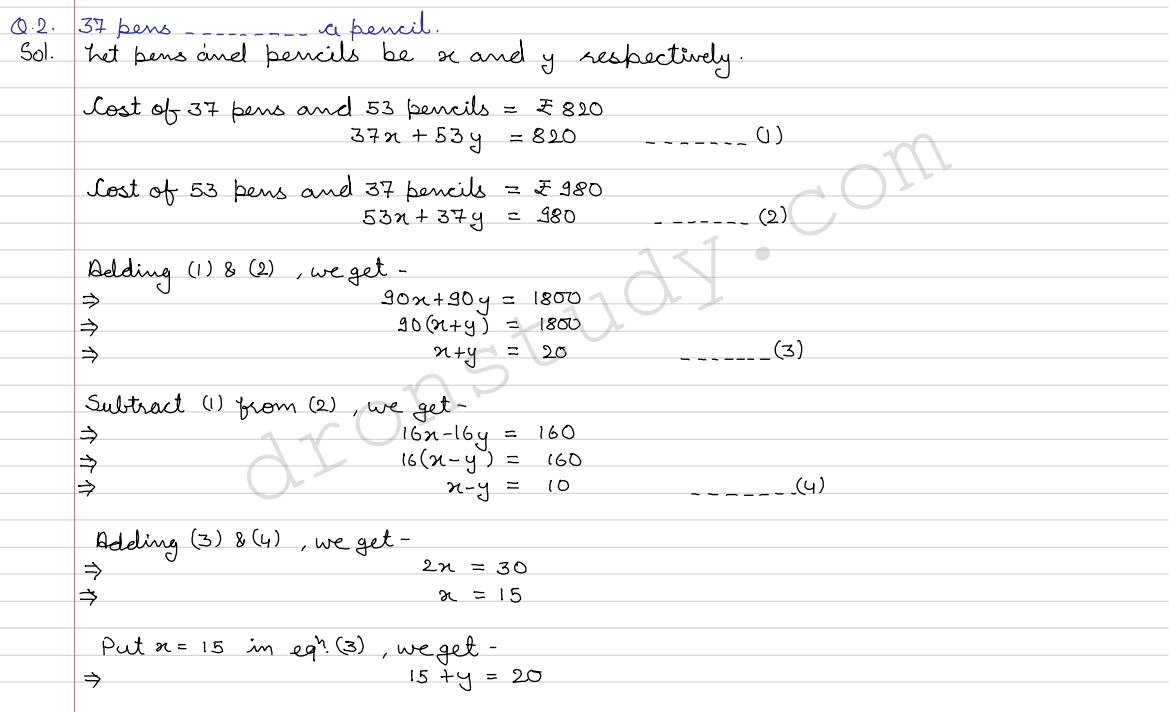 Q.2. 37 pens --------- a pencil.
Sol. Let pens and pencils be x and y respectively.
Cost of 37 pens and 53 pencils = ₹ 820
37x + 53y = 820 ------- (1)
Cost of 53 pens and 37 pencils = ₹ 980
53x + 37y = 980 ------- (2)
Adding (1) & (2), we get -
⇒ 90x + 90y = 1800
⇒ 90(x+y) = 1800
⇒ x+y = 20 ------- (3)
Subtract (1) from (2), we get -
⇒ 16x - 16y = 160
⇒ 16(x-y) = 160
⇒ x-y = 10 ------- (4)
Adding (3) & (4), we get -
⇒ 2x = 30
⇒ x = 15
Put x = 15 in eqn. (3), we get -
⇒ 15 + y = 20
dronstudy.com